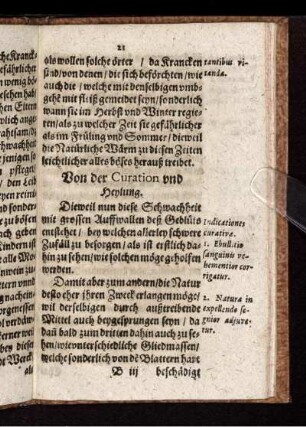 21
als wollen solche örter / da Krancken
sind / von denen / die sich beförchten / wie
auch die / welche mit denselbigen vmb-
gehē mit fleiß gemeidet seyn / sonderlich
wann sie im Herbst vnd Winter regie-
ren / als zu welcher Zeit sie gefährlicher
als im Früling vnd Sommer / dieweil
die Natürliche Wärm zu diesen Zeiten
leichtlicher alles böses herauß treibet.
Von der Curation vnd
Heylung.
Dieweil nun diese Schwachheit
mit grossen Auffwallen deß Geblüts
entstehet / bey welchen allerley schwere
Zufäll zu besorgen / als ist erstlich da-
hin zu sehen / wie solchen möge geholfen
werden.
Damit aber zum andern / die Natur
desto eher ihren Zweck erlangen möge /
wil derselbigen durch außtreibende
Mittel auch beygesprungen seyn / da
daß bald zum dritten dahin auch zu se-
hen / wie vnterschiedliche Gliedmassen /
welche sonderlich von dē Blattern hart
D iij
beschädigt
tantibus vi-
tanda.
Indicationes
curativæ.
1. Ebullitio
sanguinis ve-
hementior cor-
rigatur.
2. Natura in
expellendo se-
gnior adjuve-
tur.
als